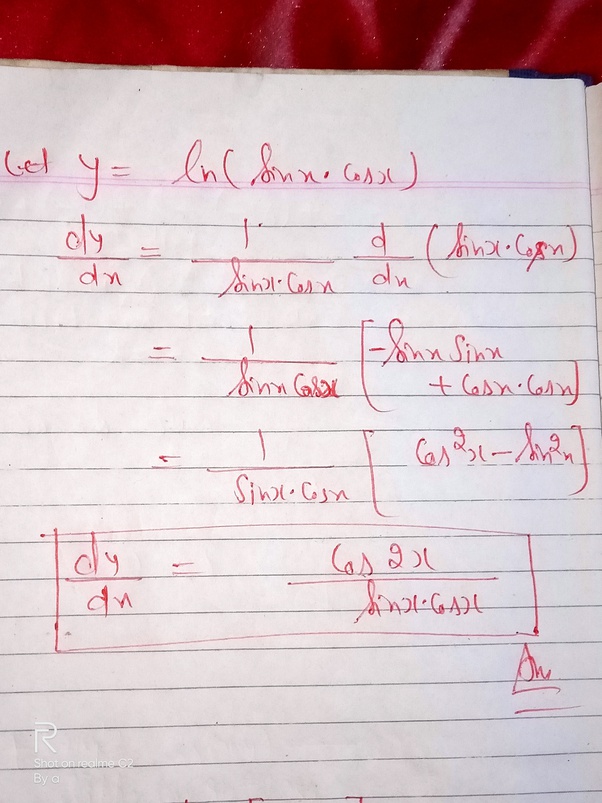 Let y = ln( Sinx · Cosx )
dy/dx = 1/(Sinx·Cosx) d/dx (Sinx·Cosx)
= 1/(Sinx Cosx) [-Sinx Sinx
+ Cosx·Cosx]
= 1/(Sinx·Cosx) [ Cos²x - Sin²x ]
dy/dx = Cos 2x/(Sinx·Cosx)
Ans
R
Shot on realme C2
By a